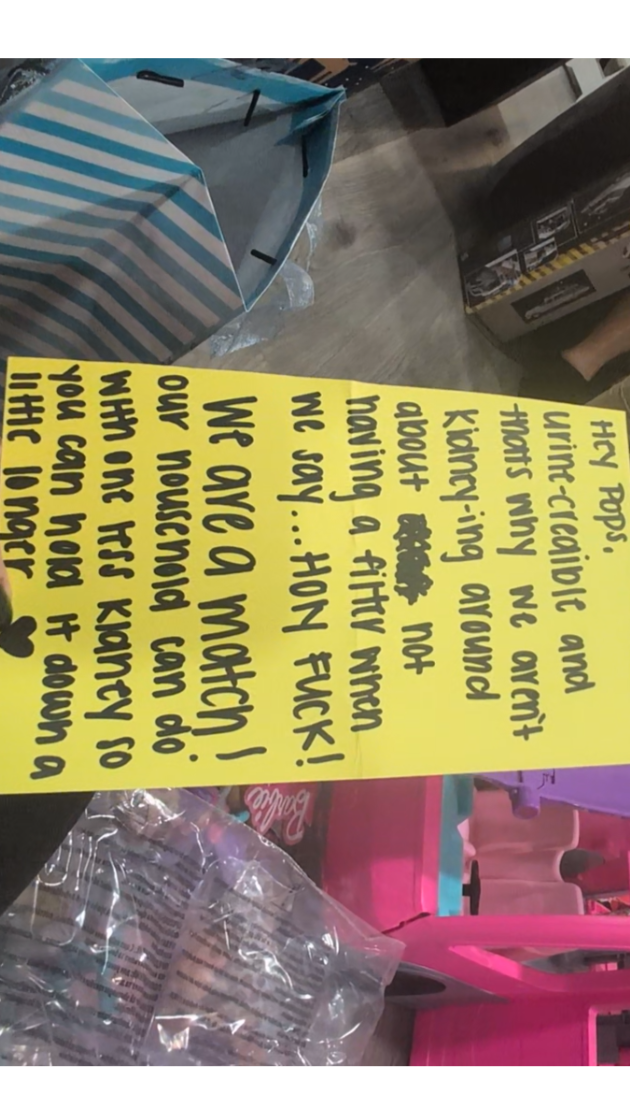 Hey Pops,
urine-credible and
thats why we aren't
kidney-ing around
about not
having a fitty when
we say...HOLY FUCK!
We are a match!
our household can do
with one less kidney so
you can hold it down a
little longer
Barbie